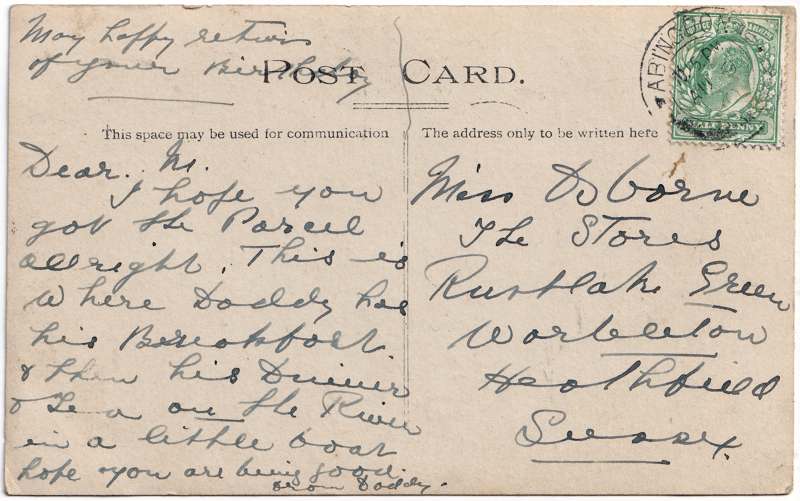 May happy returns
of your Birthday
POST CARD.
This space may be used for communication
The address only to be written here
Dear. M.
I hope you
got the Parcel
allright. This is
where Daddy has
his Breakfast
& then his Dinner
& Tea on the River
in a little boat
hope you are being good.
from Daddy.
Miss Osborne
The Stores
Rustlake Green
Warbleton
Heathfield
Sussex.
ABINGDON